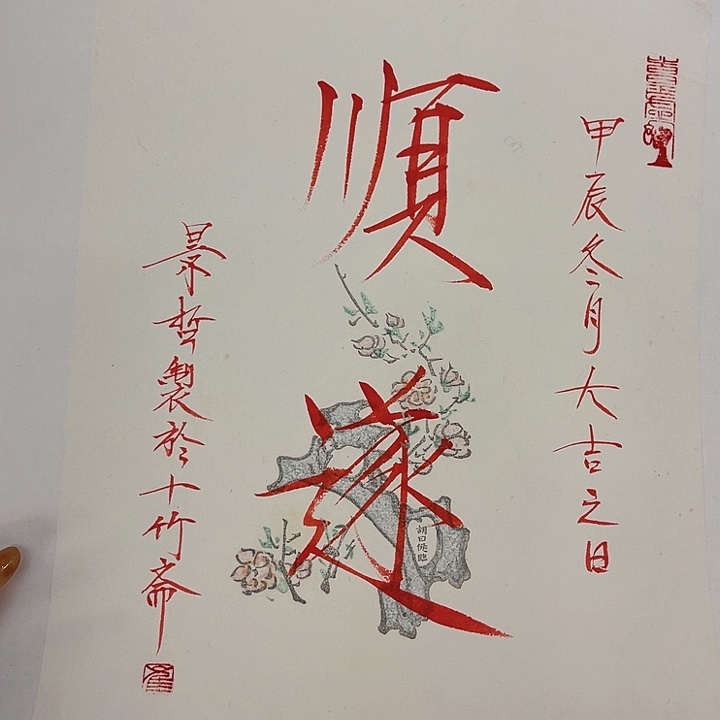 甲辰冬月大吉之日
順遂
景哲製於十竹斋
胡曰從臨